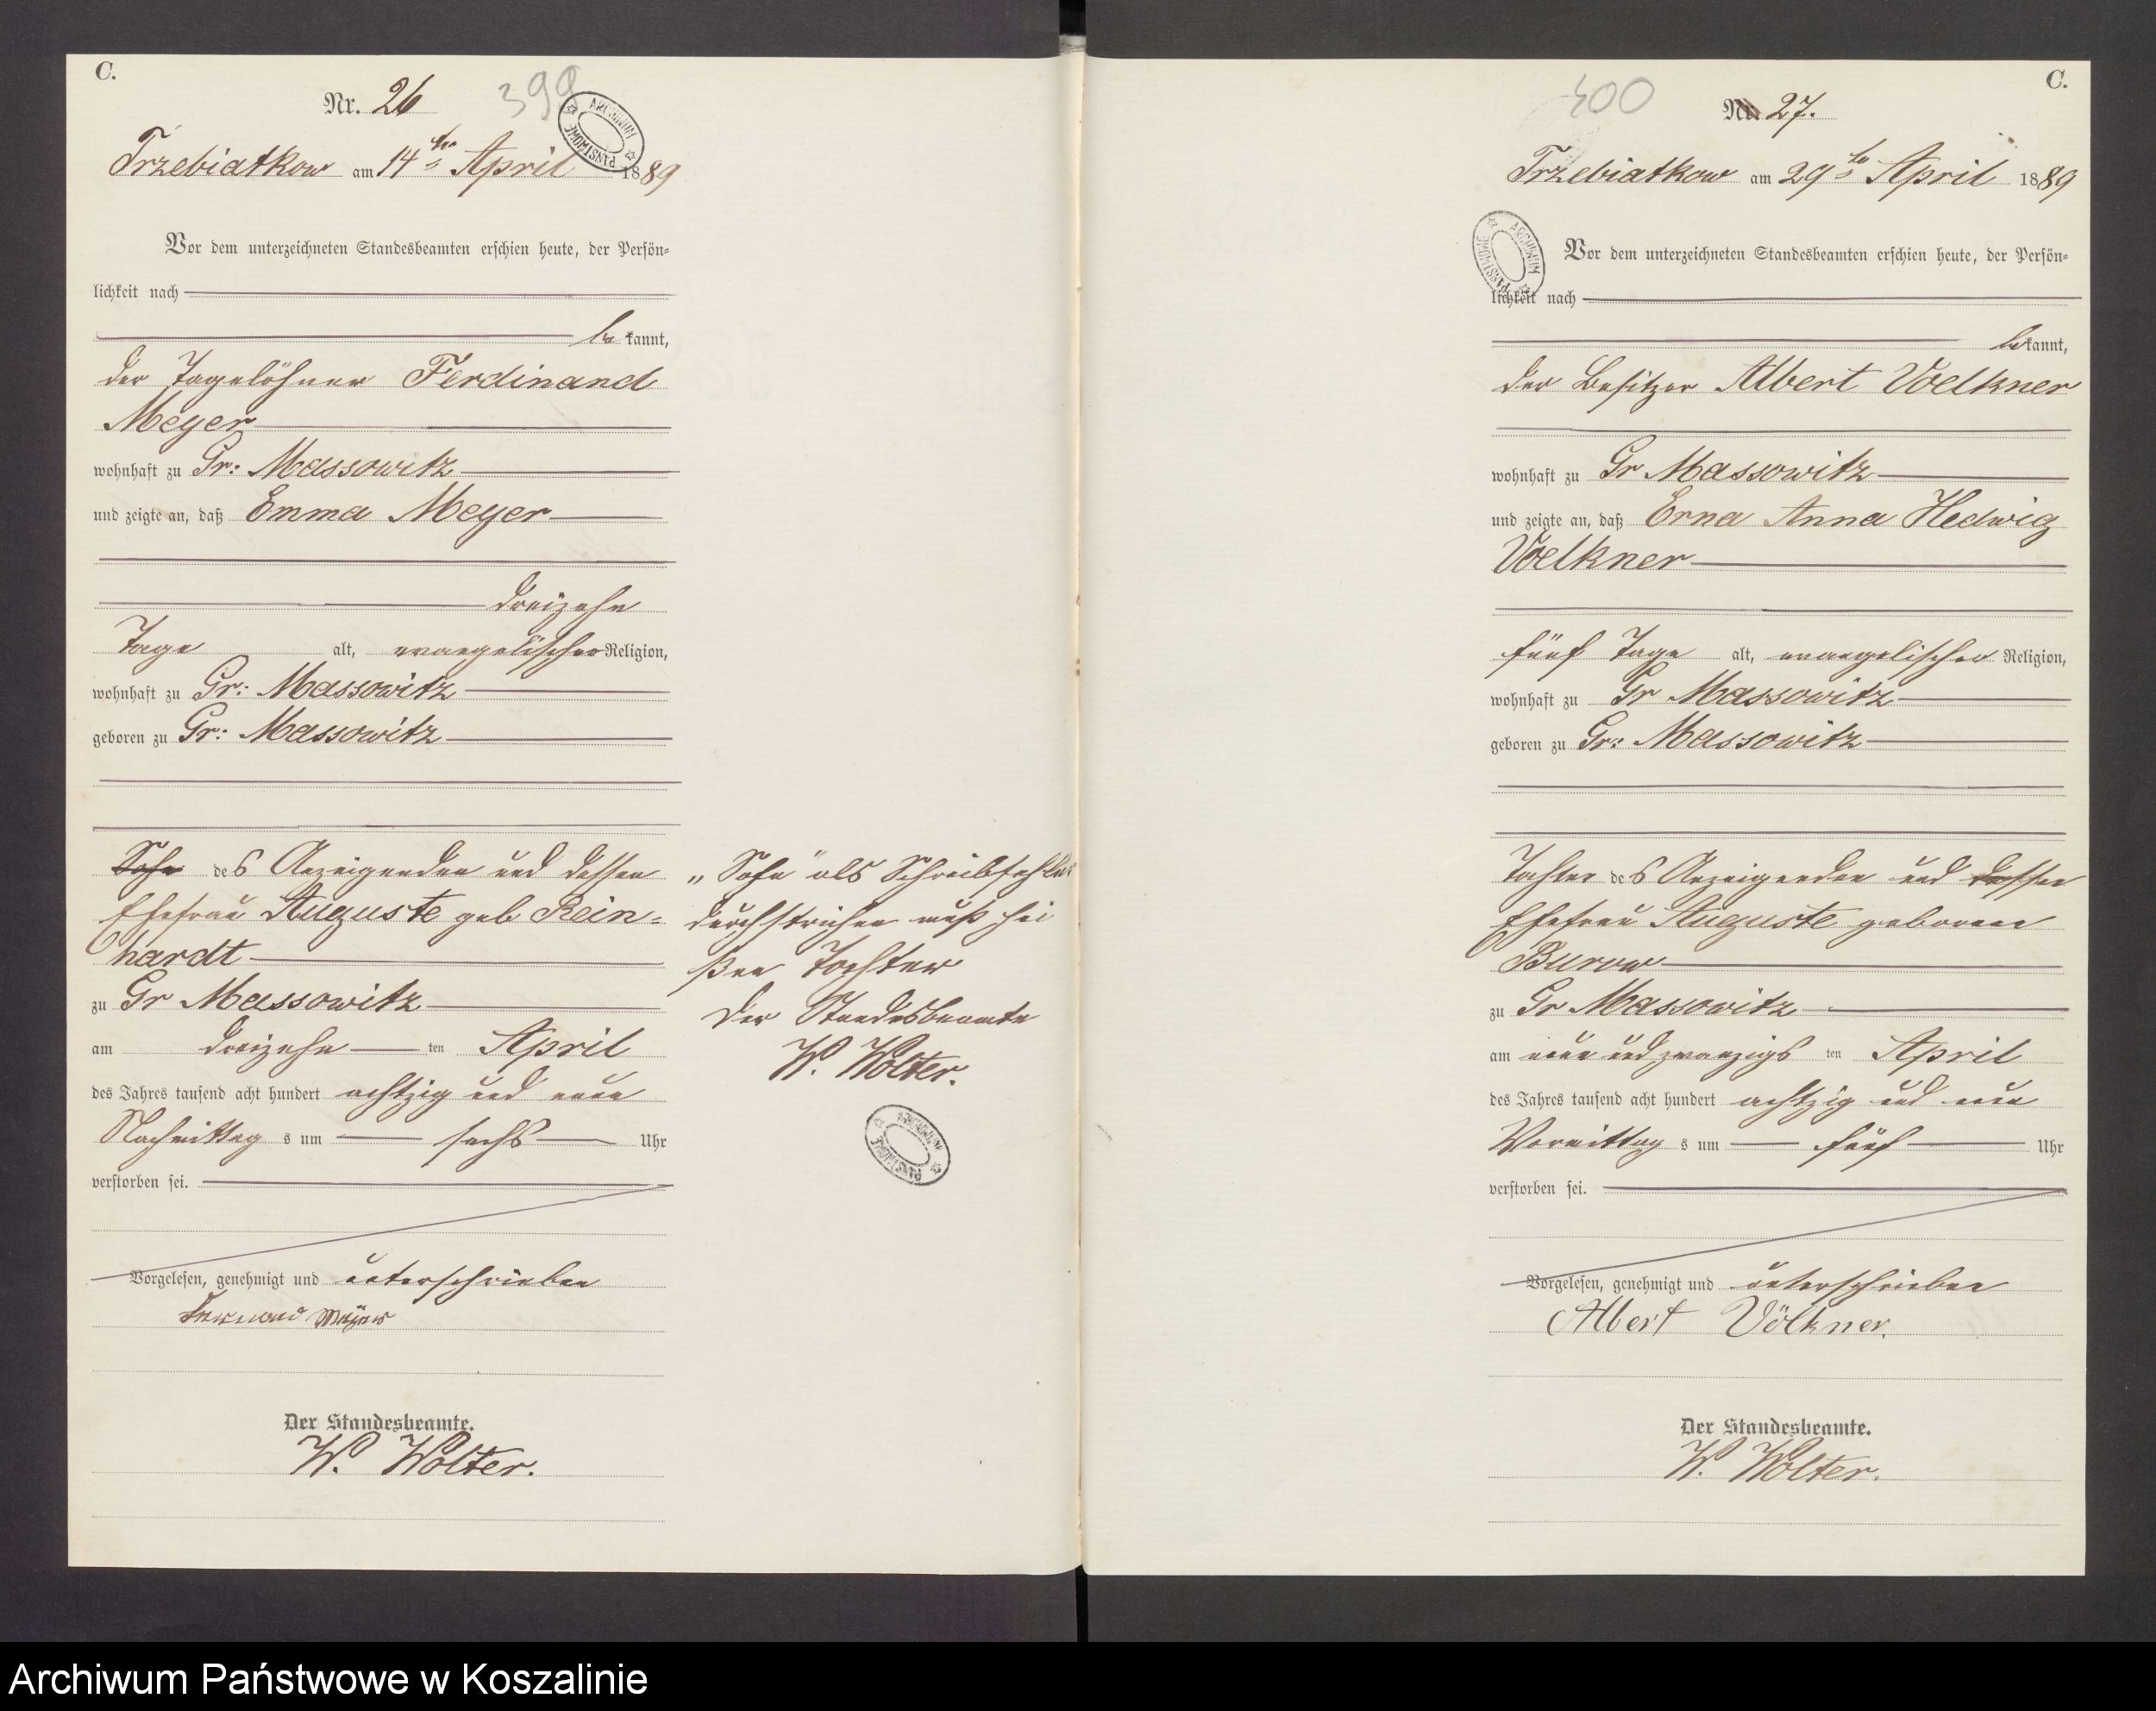 C.
Nr. 26
399
ARCHIWUM PAŃSTWOWE
Trzebiatkow am 14ten April 1889
Vor dem unterzeichneten Standesbeamten erschien heute, der Persön-
lichkeit nach
be kannt,
der Tagelöhner Ferdinand
Meyer
wohnhaft zu Gr: Massowitz
und zeigte an, daß Emma Meyer
dreizehn
Tage alt, evangelischer Religion,
wohnhaft zu Gr: Massowitz
geboren zu Gr: Massowitz
Sohn des Anzeigenden und dessen
Ehefrau Auguste geb Rein-
hardt
zu Gr Massowitz
am dreizehn ten April
des Jahres tausend acht hundert achtzig und neun
Nachmittag s um sechs Uhr
verstorben sei.
Vorgelesen, genehmigt und unterschrieben
Meyer
Der Standesbeamte.
W. Wolter.
„Sohn" als Schreibfehler
durchstrichen muß hei
ßen Tochter
Der Standesbeamte
W. Wolter.
ARCHIWUM PAŃSTWOWE
C.
400
Nr. 27.
Trzebiatkow am 29ten April 1889
ARCHIWUM PAŃSTWOWE
Vor dem unterzeichneten Standesbeamten erschien heute, der Persön-
lichkeit nach
bekannt,
der Besitzer Albert Voelkner
wohnhaft zu Gr Massowitz
und zeigte an, daß Erna Anna Hedwig
Voelkner
fünf Tage alt, evangelischer Religion,
wohnhaft zu Gr Massowitz
geboren zu Gr: Massowitz
Tochter des Anzeigenden und dessen
Ehefrau Auguste geborene
Burow
zu Gr Massowitz
am neun und zwanzigs ten April
des Jahres tausend acht hundert achtzig und neun
Vormittag s um fünf Uhr
verstorben sei.
Vorgelesen, genehmigt und unterschrieben
Albert Völkner.
Der Standesbeamte.
W. Wolter.
Archiwum Państwowe w Koszalinie